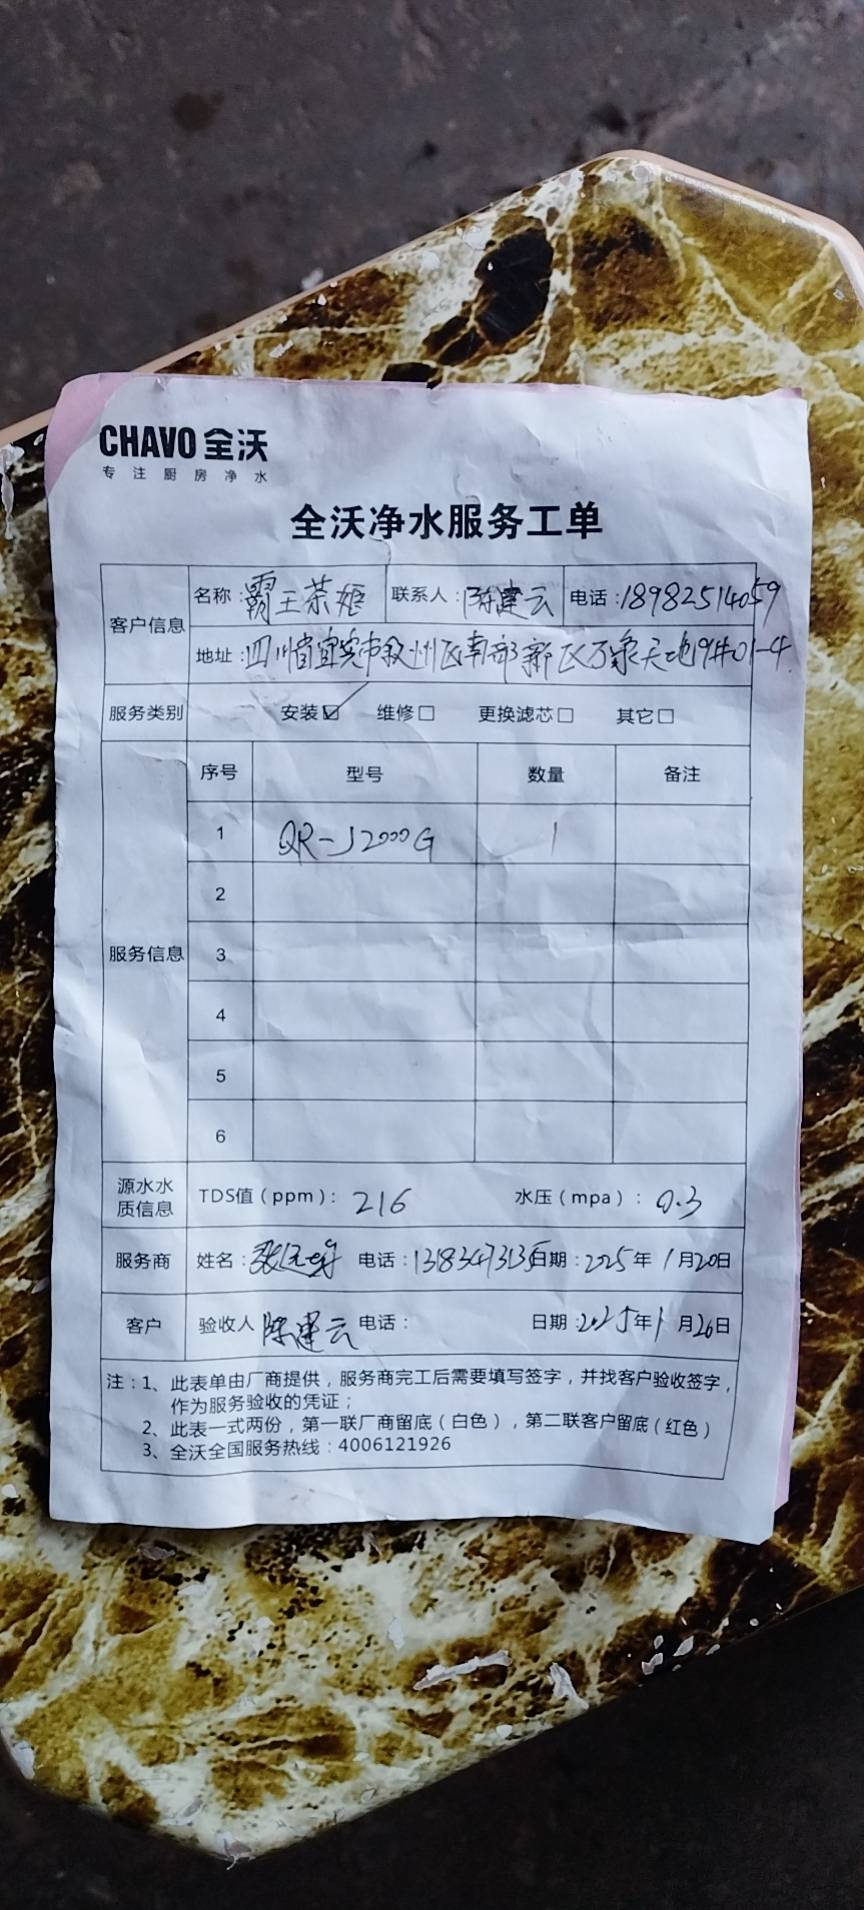 CHAVO 全沃
专注厨房净水
全沃净水服务工单
客户信息 名称：霸王茶姬 联系人：陈建云 电话：18982514059
地址：四川省宜宾市叙州区南部新区万象天地9#01-4
服务类别 安装☑ 维修□ 更换滤芯□ 其它□
序号 型号 数量 备注
服务信息
1 QR-J2000G 1
2
3
4
5
6
源水水质信息 TDS值（ppm）：216 水压（mpa）：0.3
服务商 姓名： 电话：13183473135 日期：2025年1月20日
客户 验收人 陈建云 电话： 日期：2025年1月20日
注：1、此表单由厂商提供，服务商完工后需要填写签字，并找客户验收签字，
作为服务验收的凭证；
2、此表一式两份，第一联厂商留底（白色），第二联客户留底（红色）
3、全沃全国服务热线：4006121926